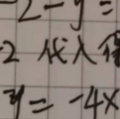 2-y=
2代入得
y=-4x